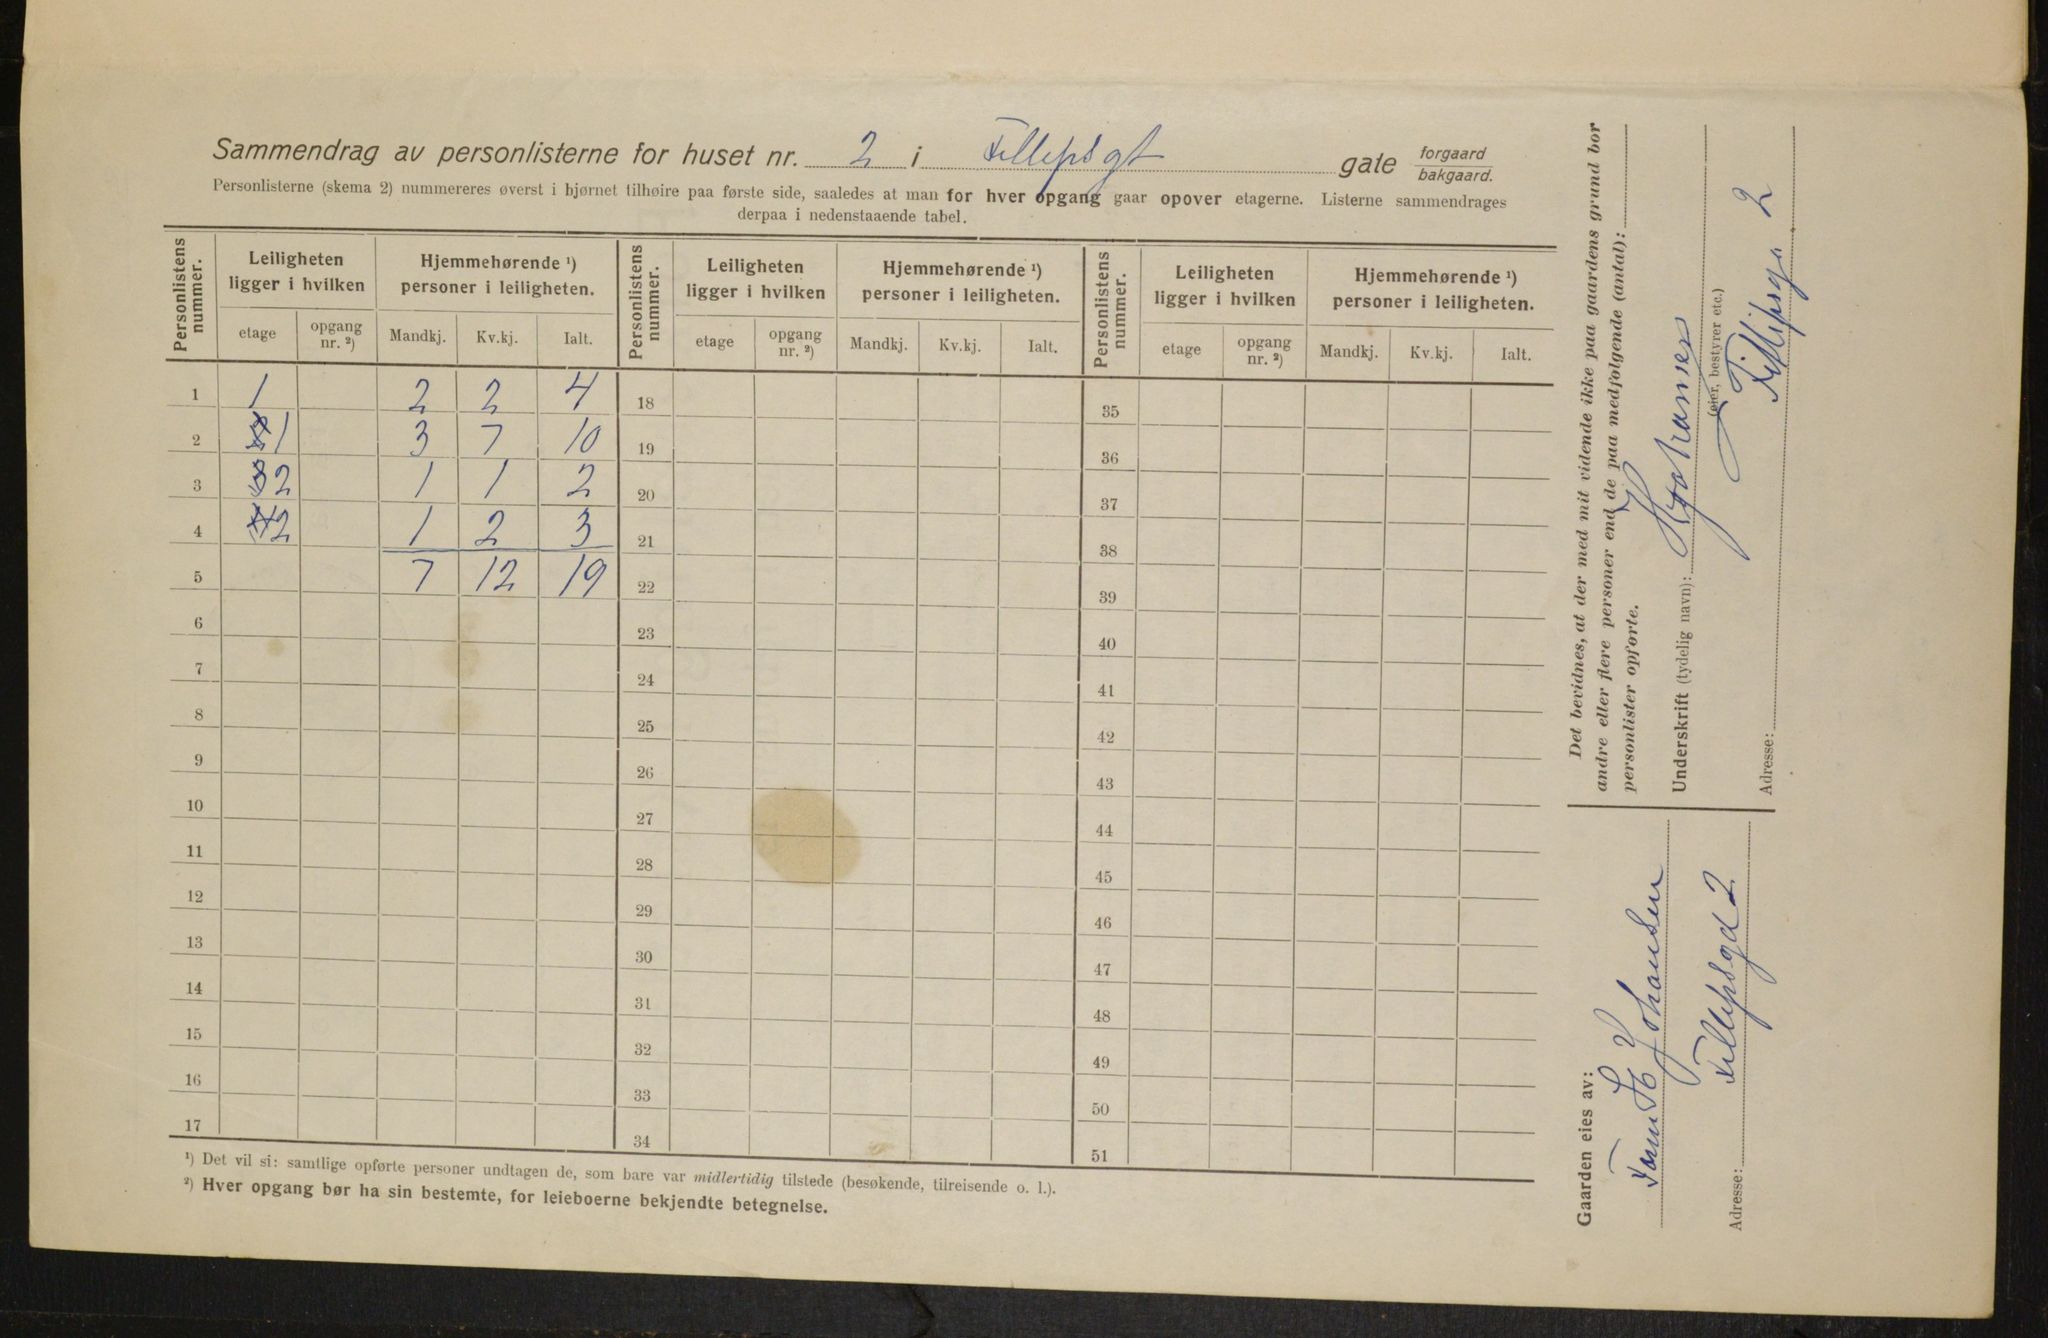 Sammendrag av personlisterne for huset nr. 2 i Fillipsgt gate forgaard bakgaard.
Personlisterne (skema 2) nummereres øverst i hjørnet tilhøire paa første side, saaledes at man for hver opgang gaar opover etagerne. Listerne sammendrages
derpaa i nedenstaaende tabel.
Personlistens nummer. Leiligheten ligger i hvilken Hjemmehørende ¹) personer i leiligheten. Personlistens nummer. Leiligheten ligger i hvilken Hjemmehørende ¹) personer i leiligheten. Personlistens nummer. Leiligheten ligger i hvilken Hjemmehørende ¹) personer i leiligheten.
etage opgang nr. ²) Mandkj. Kv.kj. Ialt. etage opgang nr. ²) Mandkj. Kv.kj. Ialt. etage opgang nr. ²) Mandkj. Kv.kj. Ialt.
1 1 2 2 4 18 35
2 1 3 7 10 19 36
3 2 1 1 2 20 37
4 2 1 2 3 21 38
5 7 12 19 22 39
6 23 40
7 24 41
8 25 42
9 26 43
10 27 44
11 28 45
12 29 46
13 30 47
14 31 48
15 32 49
16 33 50
17 34 51
¹) Det vil si: samtlige opførte personer undtagen de, som bare var midlertidig tilstede (besøkende, tilreisende o. l.).
²) Hver opgang bør ha sin bestemte, for leieboerne bekjendte betegnelse.
Det bevidnes, at der med mit vidende ikke paa gaardens grund bor
andre eller flere personer end de paa medfølgende (antal):
personlister opførte.
Underskrift (tydelig navn):
(eier, bestyrer etc.)
Adresse: Fillipsga 2
Gaarden eies av:
Johansen
Adresse: Fillipsgd 2